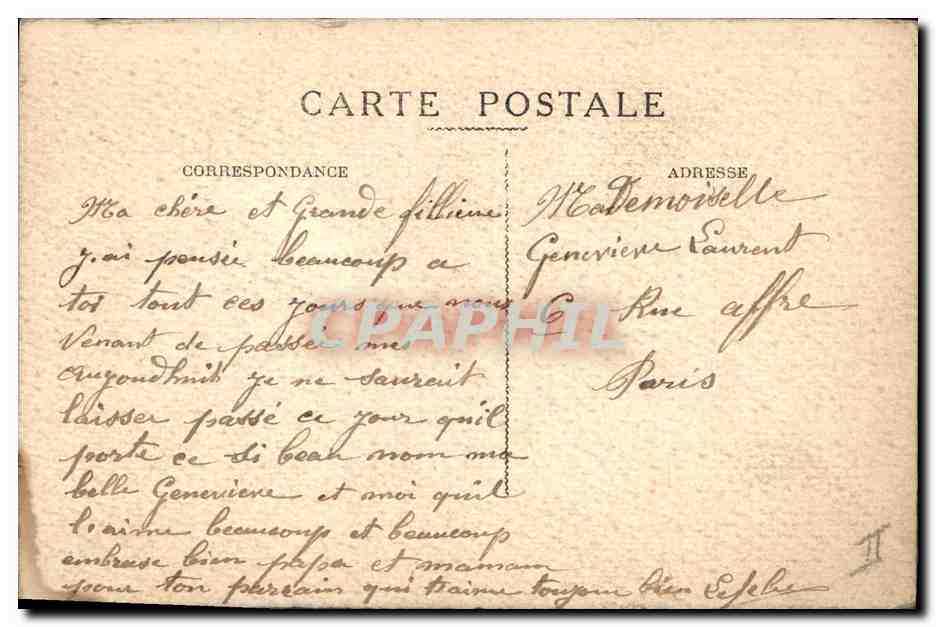 CARTE POSTALE
CORRESPONDANCE
Ma chére et Grande fillieue
j.ai pensée beaucoup a
toi tout ces jours que nous
Venant de passée mes
aujondhuit je ne saurait
laisser passé ce jour qu'il
porte ce si beau nom ma
belle Genevieve et moi qu'il
t.aime beaucoup et beaucoup
embrase bien papa et mamam
pour ton parrain qui t.aime toujour bien
ADRESSE
MaDemoiselle
Genevieve Laurent
6 Rue affre
Paris
II
CPAPHIL